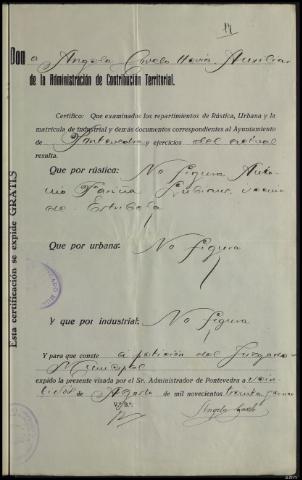 Dona Angela Covelo Hevia Auxiliar
de la Administración de Contribución Territorial.
Certifico: Que examinados los repartimientos de Rústica, Urbana y la
matrícula de industrial y demás documentos correspondientes al Ayuntamiento
de Pontevedra y ejercicios del actual
resulta.
Que por rústica: No figura Anto-
nio vecino
de Estribela
Que por urbana: No figura
Y que por industrial: No
figura
Y para que conste a petición del Juzgado
Municipal
expido la presente visada por el Sr. Administrador de Pontevedra a
de Agosto de mil novecientos treinta
Angela Covelo
Esta certificación se expide GRATIS